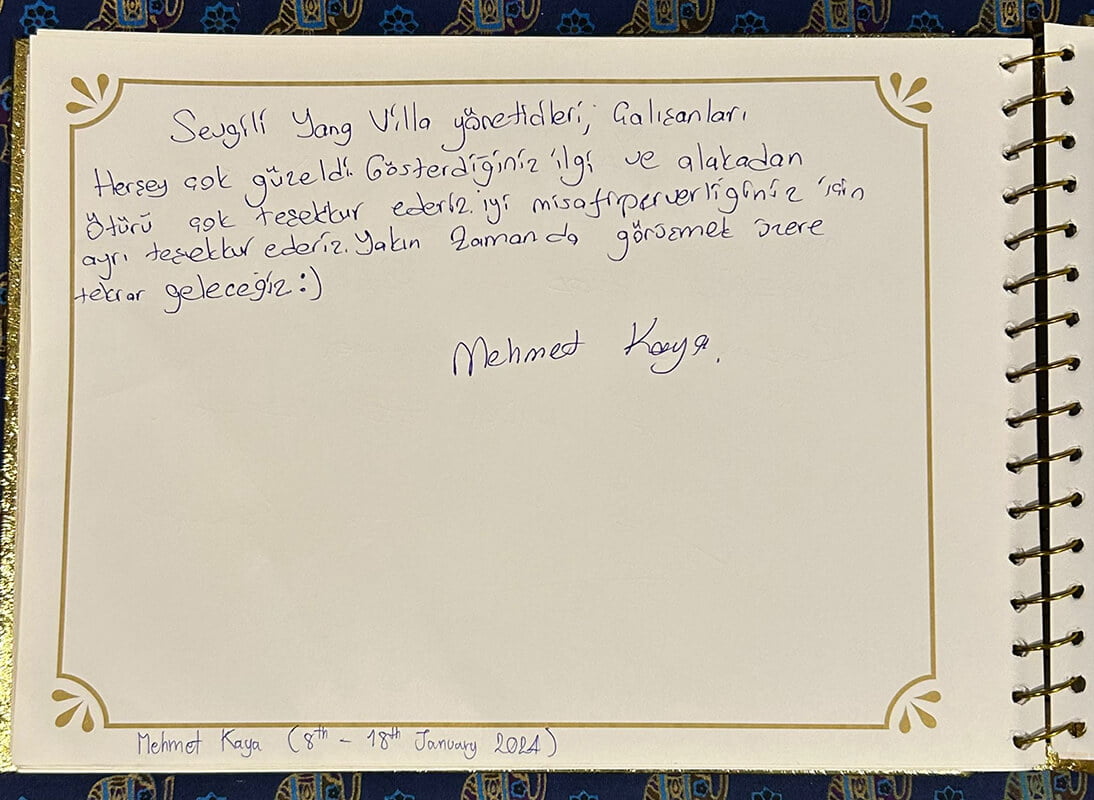 Sevgili Yang Villa yönetidleri; Çalışanları
Herşey çok güzeldi. Gösterdiğiniz ilgi ve alakadan
Ötürü çok teşekkur ederiz. iyi misafirperverliginiz için
ayrı teşekkur ederiz. Yakın Zamanda görüşmek üzere
tekrar geleceğiz :)
Mehmet Kaya.
Mehmet Kaya (8th - 18th January 2024)